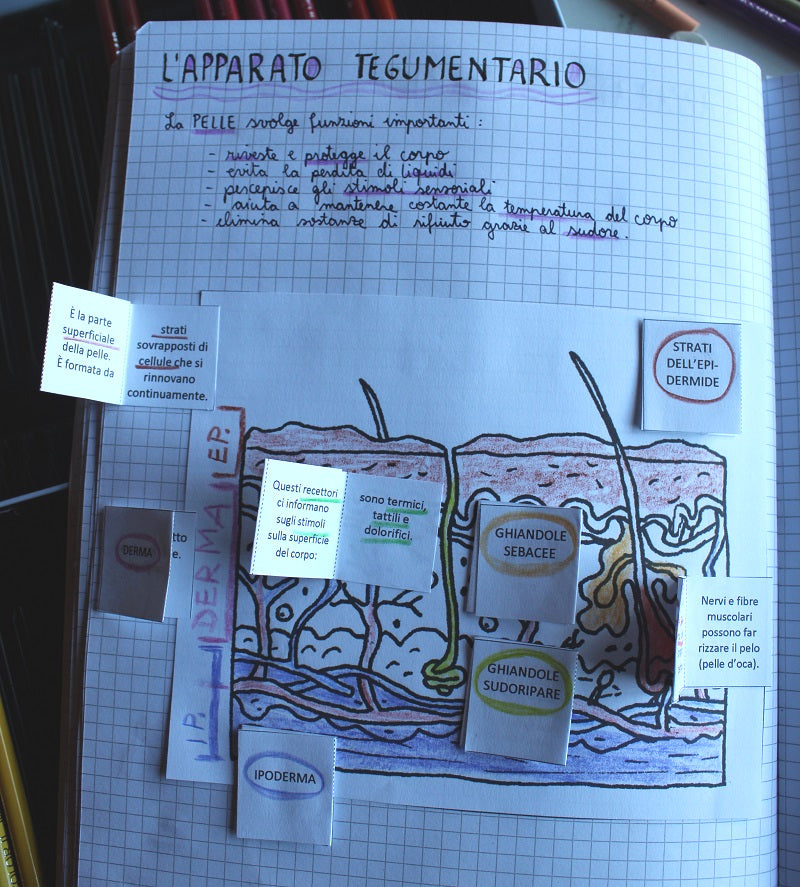 L'APPARATO TEGUMENTARIO
La PELLE svolge funzioni importanti:
- riveste e protegge il corpo
- evita la perdita di liquidi
- percepisce gli stimoli sensoriali
- aiuta a mantenere costante la temperatura del corpo
- elimina sostanze di rifiuto grazie al sudore.
È la parte
superficiale
della pelle.
È formata da
strati
sovrapposti di
cellule che si
rinnovano
continuamente.
STRATI
DELL'EPI-
DERMIDE
EP.
DERMA
I.P.
Questi recettori
ci informano
sugli stimoli
sulla superficie
del corpo:
sono termici,
tattili e
dolorifici.
GHIANDOLE
SEBACEE
DERMA
Nervi e fibre
muscolari
possono far
rizzare il pelo
(pelle d'oca).
GHIANDOLE
SUDORIPARE
IPODERMA